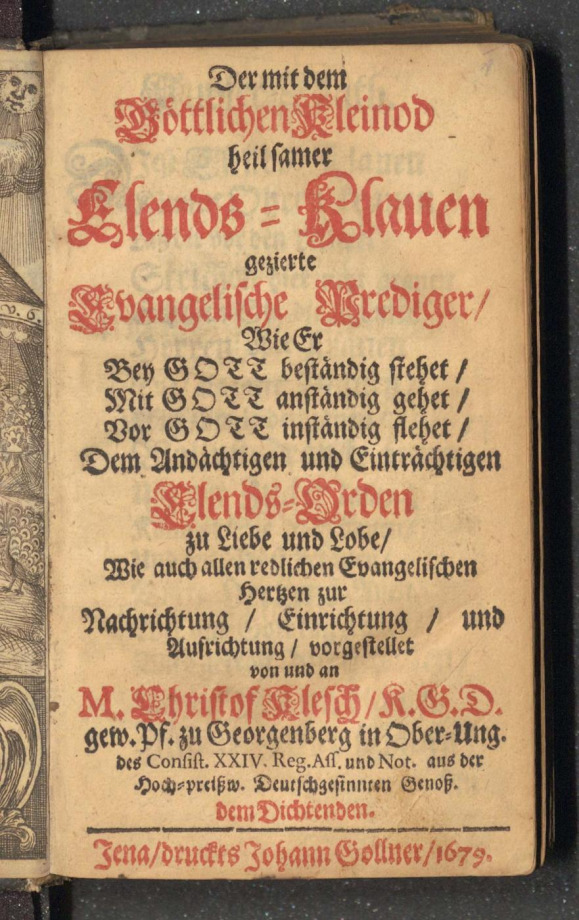 Der mit dem
Göttlichen Kleinod
heilsamer
Elends = Klauen
gezierte
Evangelische Prediger/
Wie Er
Bey GOTT beständig stehet /
Mit GOTT anständig gehet /
Vor GOTT inständig flehet /
Dem Andächtigen und Einträchtigen
Elends-Orden
zu Liebe und Lobe/
Wie auch allen redlichen Evangelischen
Hertzen zur
Nachrichtung / Einrichtung / und
Aufrichtung / vorgestellet
von und an
M. Christof Klesch/K.G.D.
gew. Pf. zu Georgenberg in Ober-Ung.
des Consist. XXIV. Reg. Ass. und Not. aus der
Hoch-preißw. Deutschgesinnten Genoß.
dem Dichtenden.
Jena/druckts Johann Gollner/1679.
v. 6.